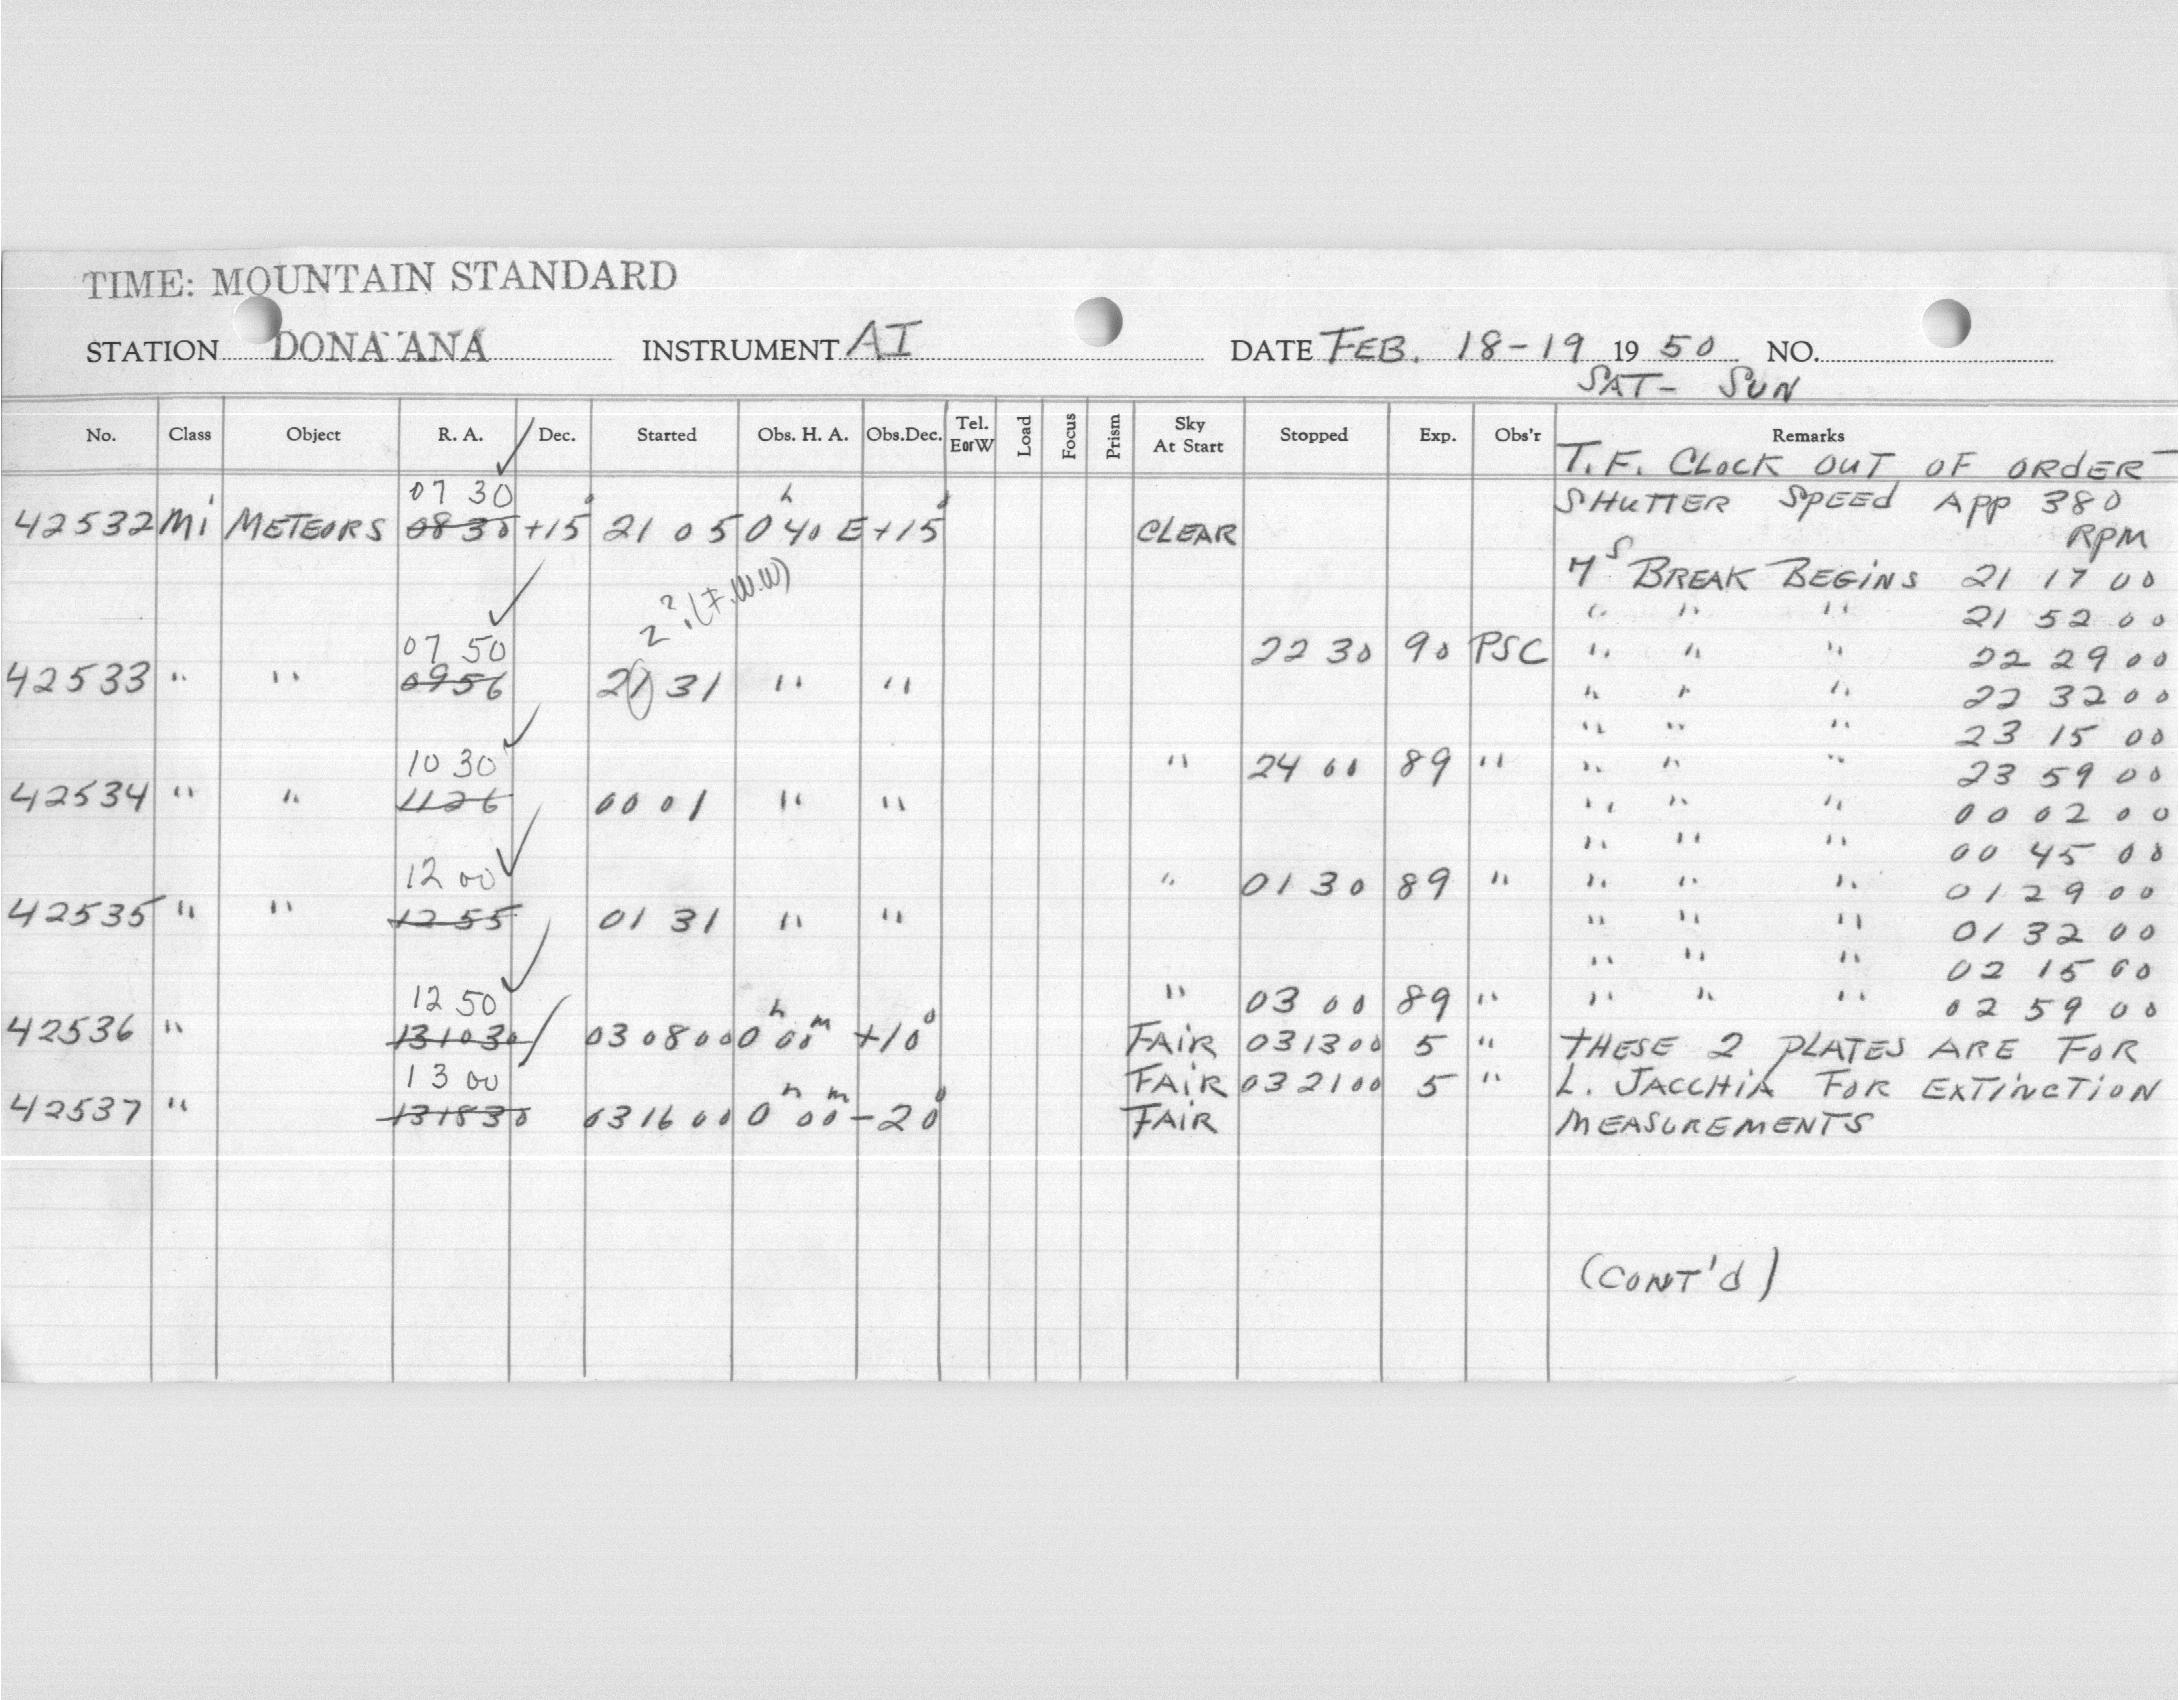 TIME: MOUNTAIN STANDARD
STATION DONA ANA INSTRUMENT AI DATE FEB. 18-19 19 50 NO.
SAT- SUN
No. Class Object R. A. Dec. Started Obs. H. A. Obs.Dec. Tel. EorW Load Focus Prism Sky At Start Stopped Exp. Obs'r Remarks
T.F. CLOCK OUT OF ORDER
07 30 SHUTTER SPEED APP 380
42532 Mi METEORS 0830 +15° 21 05 0ʰ40 E +15° CLEAR RPM
7ˢ BREAK BEGINS 21 17 00
2?.(F.W.W) " " " 21 52 00
07 50 22 30 90 PSC " " " 22 29 00
42533 " " 0956 21 31 " " " " " 22 32 00
" " " 23 15 00
10 30 " 24 00 89 " " " " 23 59 00
42534 " " 1126 00 01 " " " " " 00 02 00
" " " 00 45 00
12 00 " 01 30 89 " " " " 01 29 00
42535 " " 1255 01 31 " " " " " 01 32 00
" " " 02 15 00
12 50 " 03 00 89 " " " " 02 59 00
42536 " 131030 030800 0ʰ00ᵐ +10° FAIR 031300 5 " THESE 2 PLATES ARE FOR
13 00 FAIR 032100 5 " L. JACCHIA FOR EXTINCTION
42537 " 131830 031600 0ʰ00ᵐ -20° FAIR MEASUREMENTS
(CONT'd)